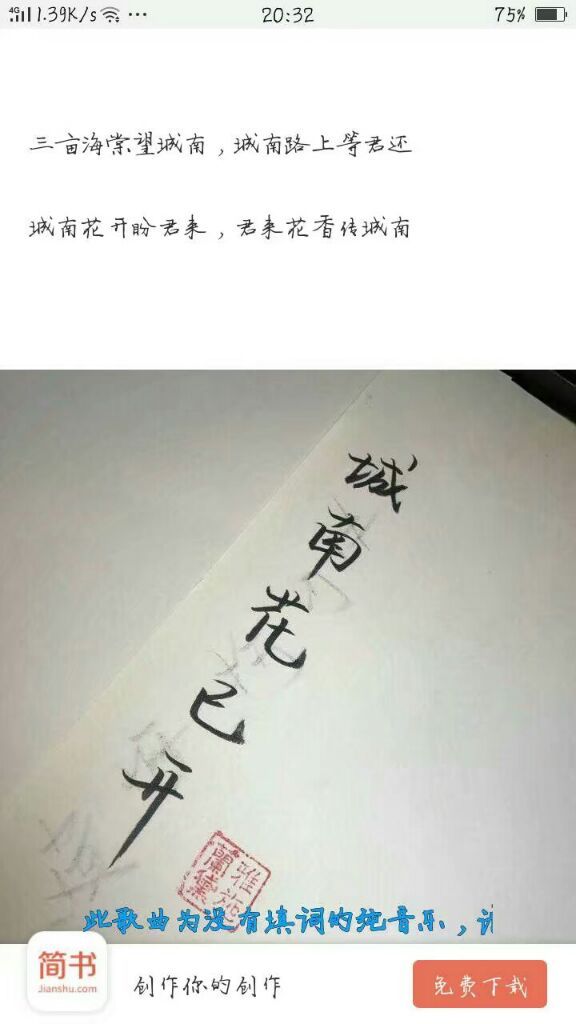 4G 1.39K/s ... 20:32 75%
三亩海棠望城南，城南路上等君还
城南花开盼君来，君来花香传城南
城南花已开
此歌曲为没有填词的纯音乐，
简书
Jianshu.com
创作你的创作
免费下载